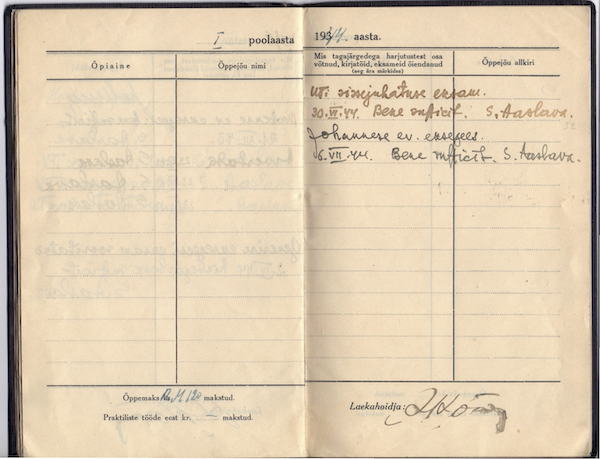 I poolaasta
Õpiaine
Õppejõu nimi
Õppemaks Rm 120 makstud.
Praktiliste tööde eest kr. — makstud.
1944. aasta.
Mis tagajärgedega harjutustest osa
võtnud, kirjatöid, eksameid õiendanud
(aeg ära märkides)
Õppejõu allkiri
UT. sissejuhatuse eksam.
30.VI.44. Bene sufficit. S. Aaslava.
Johannese ev. eksegees.
6.VII.44. Bene sufficit. S. Aaslava.
Laekahoidja: